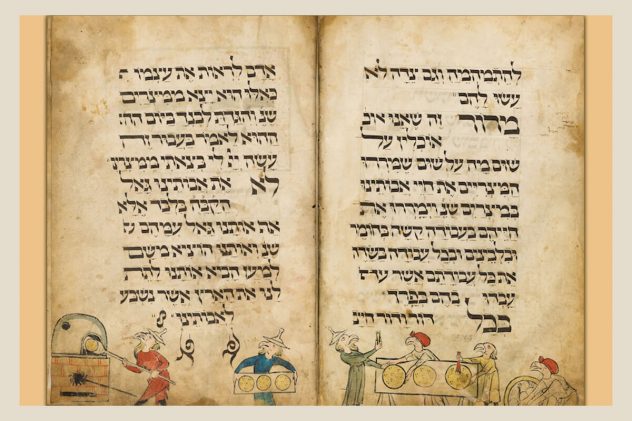 להתמהמה וגם צדה לא
עשו להם
מרור זה שאנו אוכ
אוכלין על
שום מה על שום שמררו
המצריים את חיי אבותינו
במצרים שנ וימררו את
חייהם בעבודה קשה בחומר
ובלבנים ובכל עבודה בשדה
את כל עבודתם אשר
עבדו בהם בפרך
בכל דור ודור חייב
אדם לראות את עצמו
כאלו הוא יצא ממצרים
שנ והגדת לבנך ביום ההו
ההוא לאמר בעבור זה
עשה יי לי בצאתי ממצרים
לא את אבותינו גאל
הקבה בלבד אלא
את אותנו גאל עמהם
שנ ואותנו הוציא משם
למען הביא אותנו לתת
לנו את הארץ אשר נשבע
לאבותינו